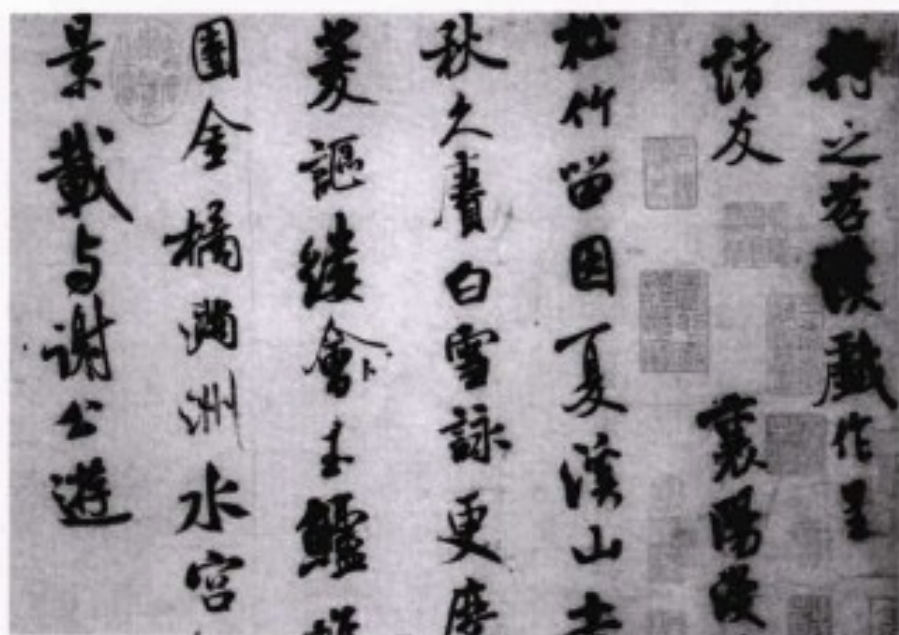 將之苕溪戲作呈
諸友 襄陽漫
松竹留因夏溪山去
秋久賡白雪詠更度
菱謳縷會玉鱸
團金橘滿洲水宮
景載与謝公遊